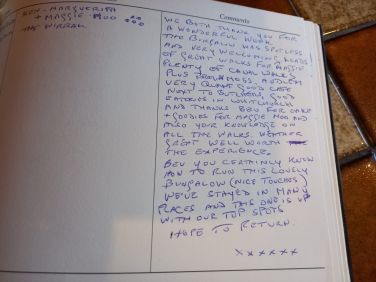 Comments
RON. MARGUERITA
+ MAGGIE MOO
THE WIRRAL
WE BOTH THANK YOU FOR
A WONDERFUL WEEK
THE BUNGALOW WAS SPOTLESS
AND VERY WELCOMING, LOADS
OF GREAT WALKS FOR MAGGIE
PLENTY OF CANAL WALKS
PLUS MOSS. AUDLEM
VERY QUAINT GOOD CAFE
NEXT TO BUTCHERS, GOOD
EATERIES IN WHITCHURCH
AND THANKS BEV FOR CAKE
+ GOODIES FOR MAGGIE MOO AND
ALSO YOUR KNOWLEDGE ON
ALL THE WALKS. WEATHER
GREAT WELL WORTH
THE EXPERIENCE.
BEV YOU CERTAINLY KNOW
HOW TO RUN THIS LOVELY
BUNGALOW (NICE TOUCHES)
WE'VE STAYED IN MANY
PLACES AND THIS ONE IS UP
WITH OUR TOP SPOTS
HOPE TO RETURN.
x x x x x x